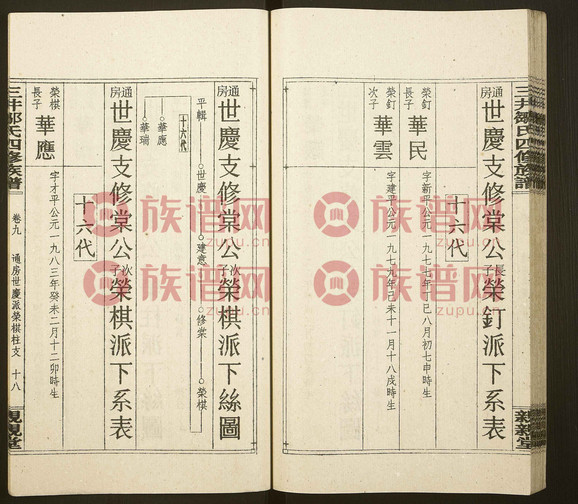 三井鄒氏四修族譜
親親堂
通房世慶支修棠公長子榮釘派下系表
十六代
榮釘長子
華民
字新平公元一九七七年丁巳八月初七申時生
榮釘次子
華雲
字建平公元一九七九年己未十一月十八戌時生
通房世慶支修棠公次子榮棋派下絲圖
平輯
世慶
建意
修棠
榮棋
十六代
華應
華瑞
通房世慶支修棠公次子榮棋派下系表
十六代
榮棋長子
華應
字才平公元一九八三年癸未二月十二卯時生
三井鄒氏四修族譜
卷九
通房世慶派榮棋柱支
十八
親親堂
族谱网
zupu.cn
族谱网
zupu.cn
族谱网
zupu.cn
族谱网
zupu.cn